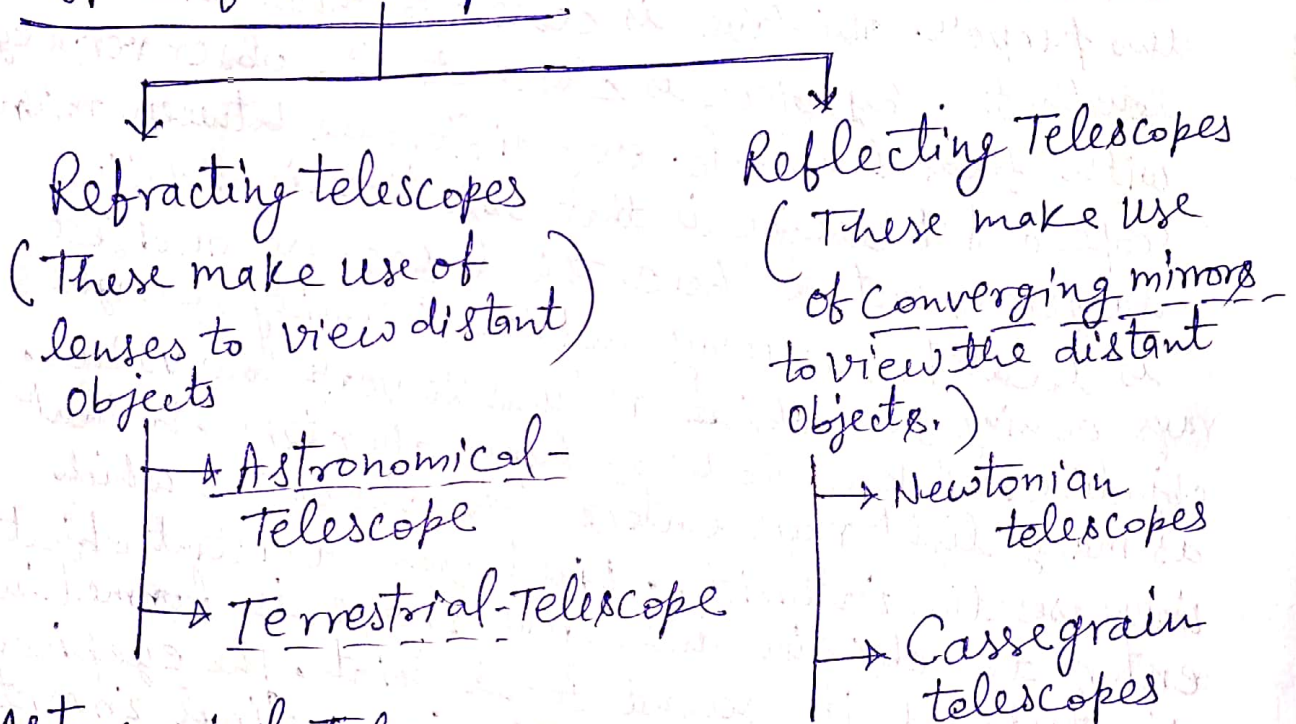 Refracting telescopes
(These make use of
lenses to view distant)
objects
Astronomical-
Telescope
Terrestrial-Telescope
Reflecting Telescopes
(These make use
of converging mirrors
to view the distant
objects.)
Newtonian
telescopes
Cassegrain
telescopes